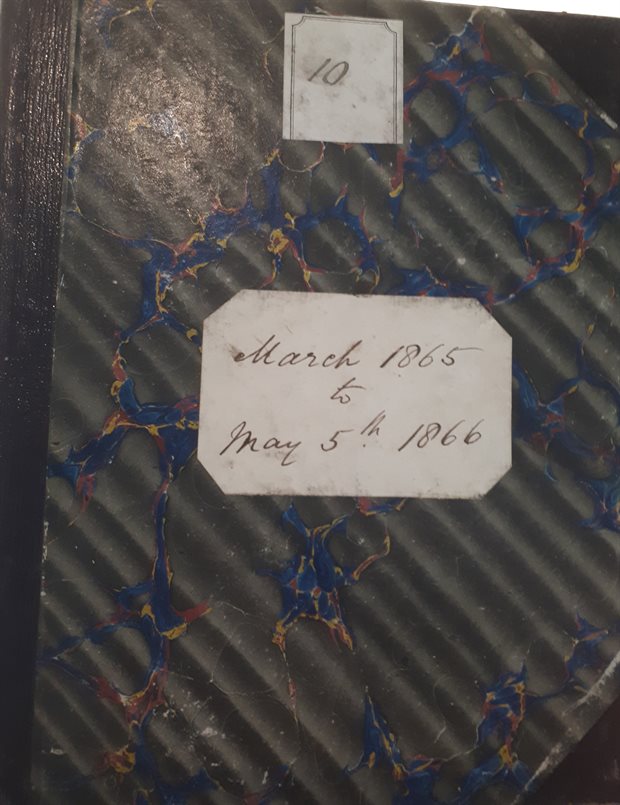 10
March 1865
to
May 5th 1866